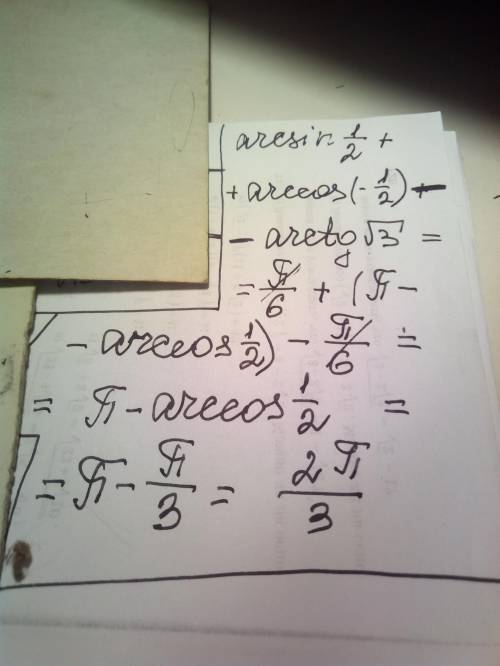 arcsin 1/2 +
+ arccos(-1/2) -
- arctg √3 =
= π/6 + (π -
- arccos 1/2) - π/6 =
= π - arccos 1/2 =
= π - π/3 = 2π/3